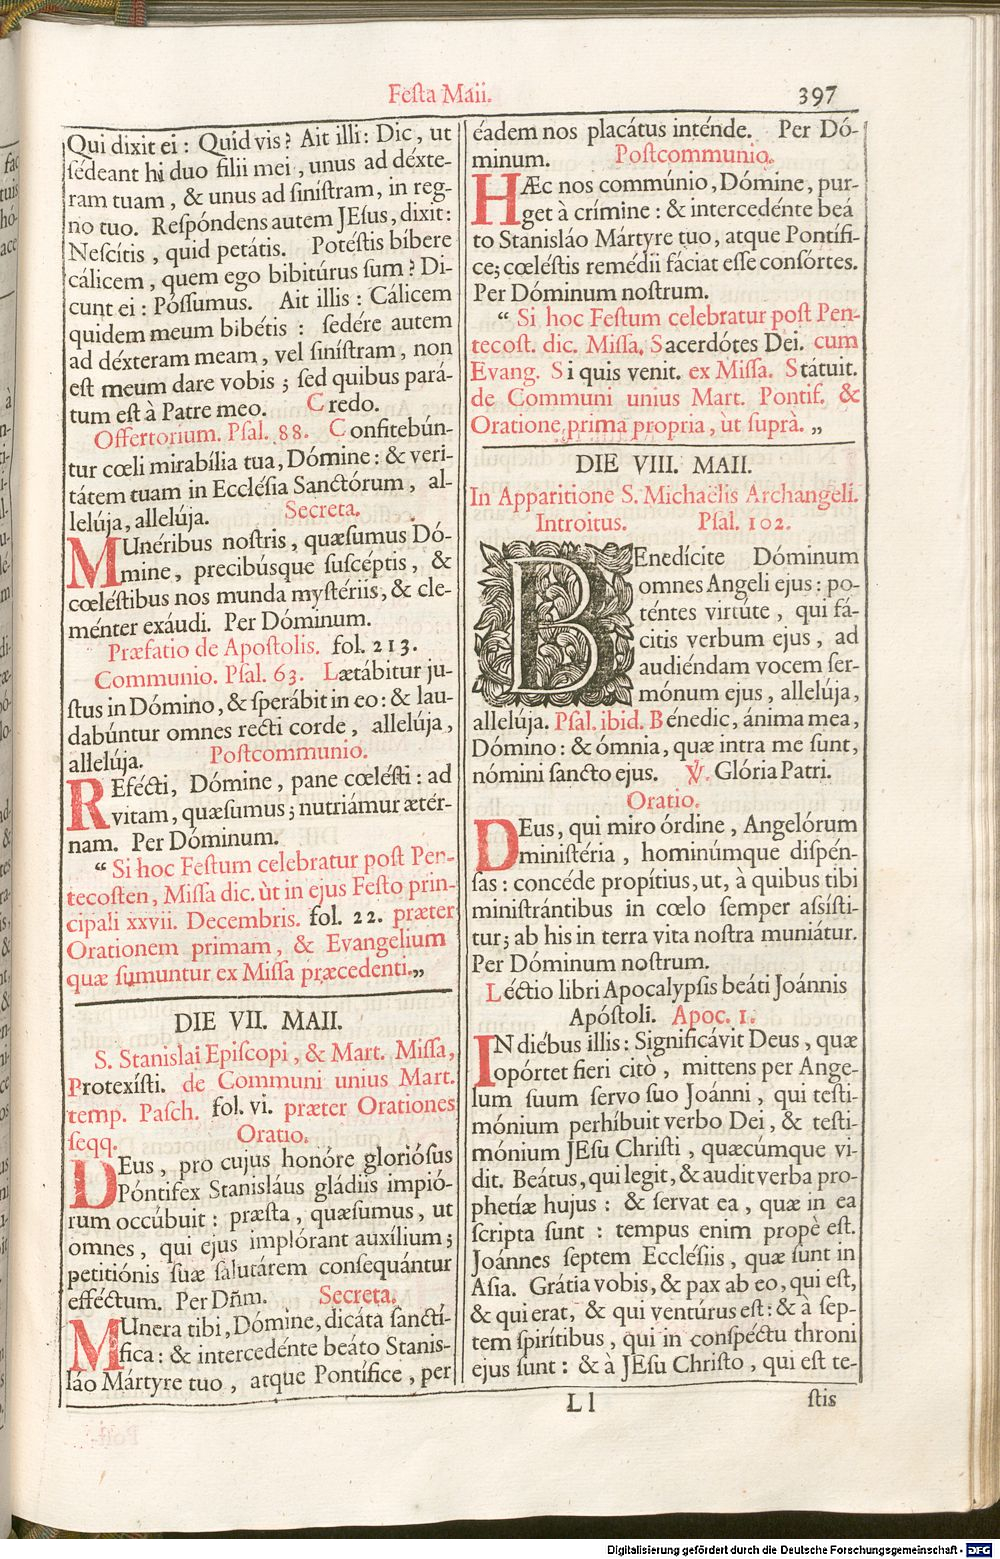 Feſta Maii. 397
Qui dixit ei: Quid vis? Ait illi: Dic, ut
ſédeant hi duo filii mei, unus ad déxte-
ram tuam, & unus ad ſiniſtram, in reg-
no tuo. Reſpóndens autem JEſus, dixit:
Neſcítis, quid petátis. Potéſtis bíbere
cálicem, quem ego bibitúrus ſum? Di-
cunt ei: Póſſumus. Ait illis: Cálicem
quidem meum bibétis: ſedére autem
ad déxteram meam, vel ſiníſtram, non
eſt meum dare vobis; ſed quibus pará-
tum eſt à Patre meo. Credo.
Offertorium. Pſal. 88. Confitebún-
tur cœli mirabília tua, Dómine: & veri-
tátem tuam in Eccléſia Sanctórum, al-
lelúja, allelúja. Secreta.
MUnéribus noſtris, quæſumus Dó-
mine, precibúsque ſuſcéptis, &
cœléſtibus nos munda myſtériis, & cle-
ménter exáudi. Per Dóminum.
Præfatio de Apoſtolis. fol. 213.
Communio. Pſal. 63. Lætábitur ju-
ſtus in Dómino, & ſperábit in eo: & lau-
dabúntur omnes recti corde, allelúja,
allelúja. Poſtcommunio.
REfécti, Dómine, pane cœléſti: ad
vitam, quæſumus; nutriámur ætér-
nam. Per Dóminum.
“ Si hoc Feſtum celebratur poſt Pen-
tecoſten, Miſſa dic. ùt in ejus Feſto prin-
cipali xxvii. Decembris. fol. 22. præter
Orationem primam, & Evangelium
quæ ſumuntur ex Miſſa præcedenti.„
DIE VII. MAII.
S. Stanislai Epiſcopi, & Mart. Miſſa,
Protexíſti. de Communi unius Mart.
temp. Paſch. fol. vi. præter Orationes
ſeqq. Oratio.
DEus, pro cujus honóre glorióſus
Póntifex Stanisláus gládiis impió-
rum occúbuit: præſta, quæſumus, ut
omnes, qui ejus implórant auxílium;
petitiónis ſuæ ſalutárem conſequántur
efféctum. Per Dñm. Secreta.
MUnera tibi, Dómine, dicáta ſanctí-
fica: & intercedénte beáto Stanis-
láo Mártyre tuo, atque Pontífice, per
éadem nos placátus inténde. Per Dó-
minum. Poſtcommunio.
HÆc nos commúnio, Dómine, pur-
get à crímine: & intercedénte beá
to Stanisláo Mártyre tuo, atque Pontífi-
ce; cœléſtis remédii fáciat eſſe conſórtes.
Per Dóminum noſtrum.
“ Si hoc Feſtum celebratur poſt Pen-
tecoſt. dic. Miſſa. Sacerdótes Dei. cum
Evang. Si quis venit. ex Miſſa. Státuit.
de Communi unius Mart. Pontif. &
Oratione prima propria, ùt ſuprà. „
DIE VIII. MAII.
In Apparitione S. Michaëlis Archangeli.
Introitus. Pſal. 102.
BEnedícite Dóminum
omnes Angeli ejus: po-
téntes virtúte, qui fá-
citis verbum ejus, ad
audiéndam vocem ſer-
mónum ejus, allelúja,
allelúja. Pſal. ibid. Bénedic, ánima mea,
Dómino: & ómnia, quæ intra me ſunt,
nómini ſancto ejus. ℣. Glória Patri.
Oratio.
DEus, qui miro órdine, Angelórum
miniſtéria, hominúmque diſpén-
ſas: concéde propítius, ut, à quibus tibi
miniſtrántibus in cœlo ſemper aſſíſti-
tur; ab his in terra vita noſtra muniátur.
Per Dóminum noſtrum.
Léctio libri Apocalypſis beáti Joánnis
Apóſtoli. Apoc. 1.
IN diébus illis: Significávit Deus, quæ
opórtet fieri citò, mittens per Ange-
lum ſuum ſervo ſuo Joánni, qui teſti-
mónium perhíbuit verbo Dei, & teſti-
mónium JEſu Chriſti, quæcúmque vi-
dit. Beátus, qui legit, & audit verba pro-
phetíæ hujus: & ſervat ea, quæ in ea
ſcripta ſunt: tempus enim propè eſt.
Joánnes ſeptem Eccléſiis, quæ ſunt in
Aſia. Grátia vobis, & pax ab eo, qui eſt,
& qui erat, & qui ventúrus eſt: & à ſep-
tem ſpirítibus, qui in conſpéctu throni
ejus ſunt: & à JEſu Chriſto, qui eſt te-
Ll ſtis
Digitalisierung gefördert durch die Deutsche Forschungsgemeinschaft - DFG